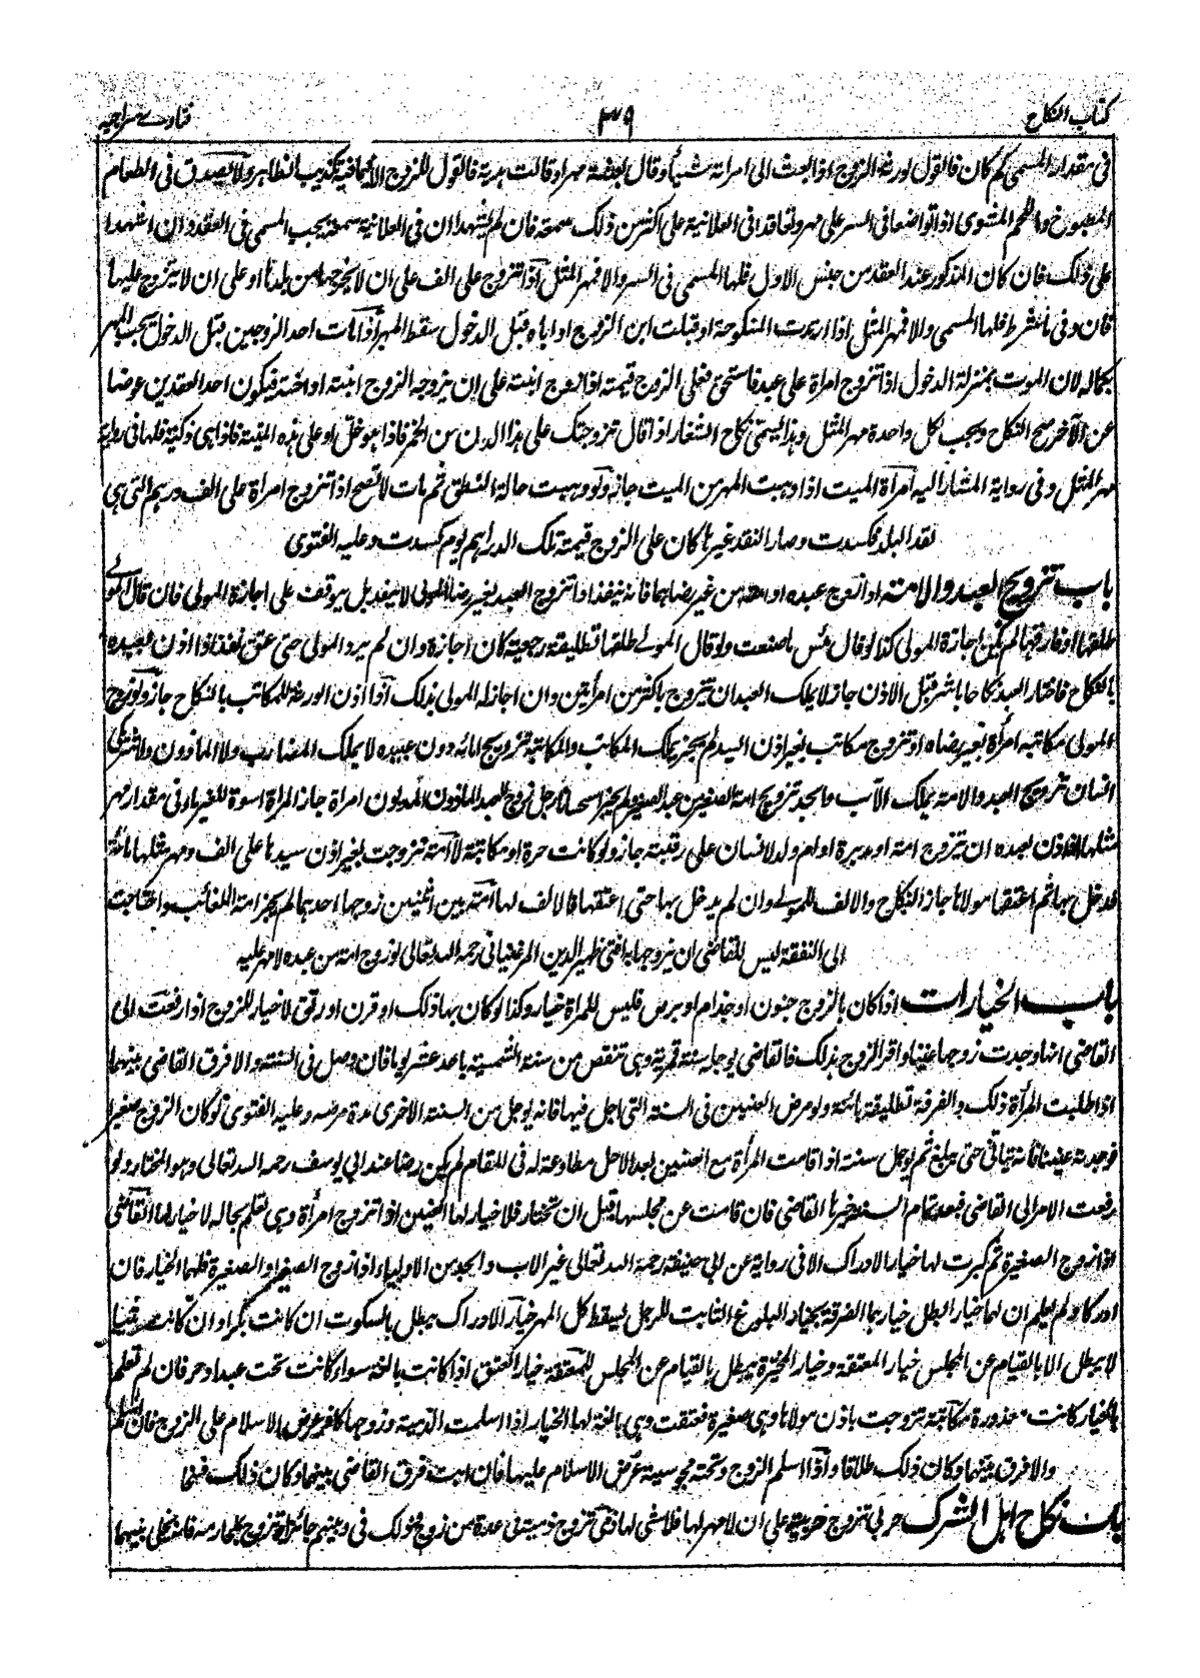 كتاب النكاح ٣٩ فتاوے سراجيه
فى مقدار المسمى كم كان فالقول لورثة الزوج اذا بعث الى امراته شيئا وقال بعثته مهرا وقالت هدية فالقول للزوج الا يكذبه الظاهر ولا يصدق فى الطعام
المطبوخ واللحم المشوى اذا تواضعا فى السر على مهر وتعاقدا فى العلانية على اكثر من ذلك سمعة فان لم يشهدا ان فى العلانية سمعة يجب المسمى فى العقد وان اشهدا
على ذلك فان كان المذكور عند العقد من جنس الاول فلها المسمى فى السر والا فمهر المثل اذا تزوج على الف على ان لا يخرجها من بلدتها او على ان لا يتزوج عليها
فان وفى بالشرط فلها المسمى والا فمهر المثل اذا ارتدت المنكوحة او قبلت ابن الزوج او اباه قبل الدخول سقط المهر اذا مات احد الزوجين قبل الدخول يجب المهر
بكماله لان الموت بمنزلة الدخول اذا تزوج امراة على عبد فاستحق فعلى الزوج قيمته اذا زوج ابنته على ان يزوجه الزوج ابنته او اخته فيكون احد العقدين عوضا
عن الآخر صح النكاح ويجب لكل واحدة مهر المثل وهذا يسمى نكاح الشغار اذا قال تزوجتك على هذا الدن من الخمر فاذا هو خل او على هذه الميتة فاذا هى ذكية فلها فى رواية
مهر المثل وفى رواية المشار اليه امرأة الميت اذا وهبت المهر من الميت جاز ولو وهبت حالة الطلق ثم مات لا تصح اذا تزوج امراة على الف درهم التى هى
نقد البلد فكسدت وصار النقد غيرها كان على الزوج قيمة تلك الدراهم يوم كسدت وعليه الفتوى
باب تزويج العبد والامة اذا زوج عبده او امته من غير رضاهما فانه ينفذ اذا تزوج العبد بغير رضا المولى لا ينفذ بل يتوقف على اجازة المولى فان قال المولے
طلقها او فارقها لم يكن اجازة المولى كذا لو قال بئس ما صنعت ولو قال المولے طلقها تطليقة رجعية كان اجازة وان لم يرد المولى حتى عتق نفذ اذا اذن لعبده
بالنكاح فاختار العبد نكاحا باشر قبل الاذن جاز لا يملك العبد ان يتزوج باكثر من امرأتين وان اجاز له المولى بذلك اذا اذن الورثة للمكاتب بالنكاح جاز ولو زوج
المولى مكاتبه امرأة بغير رضاه او تزوج مكاتب بغير اذن السيد لم يجز يملك المكاتب والمكاتبة تزويج امائه دون عبيده لا يملك المضارب ولا الماذون والشريك
انسان تزويج العبد والامة يملك الاب والجد تزويج امة الصغير من عبد الصغير لم يجز استحسانا رجل زوج العبد الماذون المديون امراة جاز المراة اسوة للغرماء فى مقدار مهر
مثلها اذا اذن لعبده ان تزوج امته او مدبرة او ام ولد لانسان على رقبته جاز ولو كانت حرة او مكاتبة لا امة تزوجت بغير اذن سيدها على الف ومهر مثلها مائة
فدخل بها ثم اعتقها مولاها جاز النكاح والالف للمولے وان لم يدخل بها حتى اعتقها فالالف لها امة بين اثنين زوجها احدهما لم يجز امة الغائب واحتاجت
الى النفقة ليس للقاضى ان يزوجها به افتى ظهير الدين المرغينانى رحمه الله تعالى لو زوج امته من عبده لا مهر عليه
باب الخيارات اذا كان بالزوج جنون او جذام او برص فليس للمراة خيار وكذا لو كان بها ذلك او قرن او رتق لا خيار للزوج اذا رفعت الى
القاضى انها وجدت زوجها عنينا واقر الزوج بذلك فالقاضى يوجله سنة قمرية وهى تنقص من سنة الشمسية باحد عشر يوما فان وصل فى السنة والا فرق القاضى بينهما
اذا طلبت المرأة ذلك والفرقة تطليقة بائنة ولو مرض العنين فى السنة التى اجل فيها فانه يوجل من السنة الاخرى مدة مرضه وعليه الفتوى لو كان الزوج صغيرا
فوجدته عنينا فانه يتانى حتى يبلغ ثم يوجل سنة اذا قامت المرأة مع العنين بعد الاجل مطاوعة له فى المقام لم يكن رضا عند ابى يوسف رحمه الله تعالى وهو المختار ولو
رفعت الامر الى القاضى فبعد تمام السنة خيرها القاضى فان قامت عن مجلسها قبل ان تختار فلا خيار لها العنين اذا تزوج امرأة وهى تعلم بحاله لا خيار لها القاضى
اذا زوج الصغيرة ثم كبرت لها خيار الادراك الا فى رواية عن ابى حنيفة رحمه الله تعالى غير الاب والجد من الاولياء اذا زوج الصغير او الصغيرة فلهما الخيار فان
ادركا ولم يعلم ان لهما خيار ابطل خيارهما الفرقة بخيار البلوغ الثابت للرجل يسقط كل المهر خيار الادراك يبطل بالسكوت ان كانت بكرا وان كانت ثيبا
لا يبطل الا بالقيام عن المجلس خيار المعتقة وخيار المخيرة يبطل بالقيام عن المجلس للمعتقة خيار العتق اذا كانت بالغة سواء كانت تحت عبد او حر فان لم تعلم
بالخيار كانت معذورة مكاتبة تزوجت باذن مولاها وهى صغيرة فعتقت وهى بالغة لها الخيار اذا اسلمت الذمية وزوجها كافر عرض الاسلام على الزوج فان اسلم
والا فرق بينهما وكان ذلك طلاقا واذا اسلم الزوج وتحته مجوسية عرض الاسلام عليها فان ابت فرق القاضى بينهما وكان ذلك فسخا
باب نكاح اهل الشرك حربى تزوج حربية على ان لا مهر لها فلا شئ لها ذمى تزوج ذمية فى عدة من زوج وذلك فى دينهم جائز تزوج بمحارمه فانه يخلى بينهما